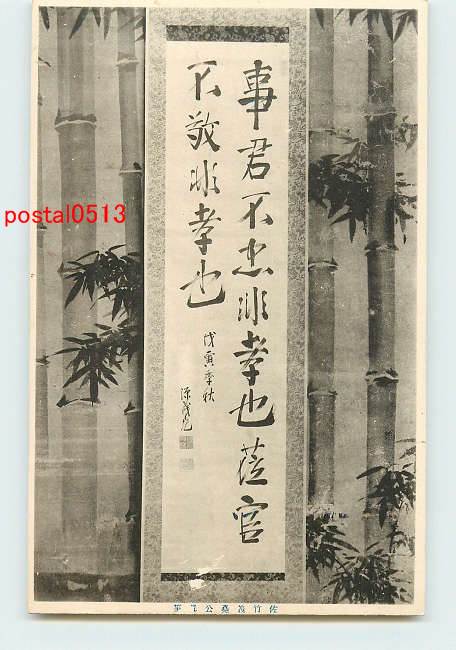 事君不忠非孝也莅官
不敬非孝也
戊寅季秋
源義堯
postal0513
佐竹義堯公眞筆